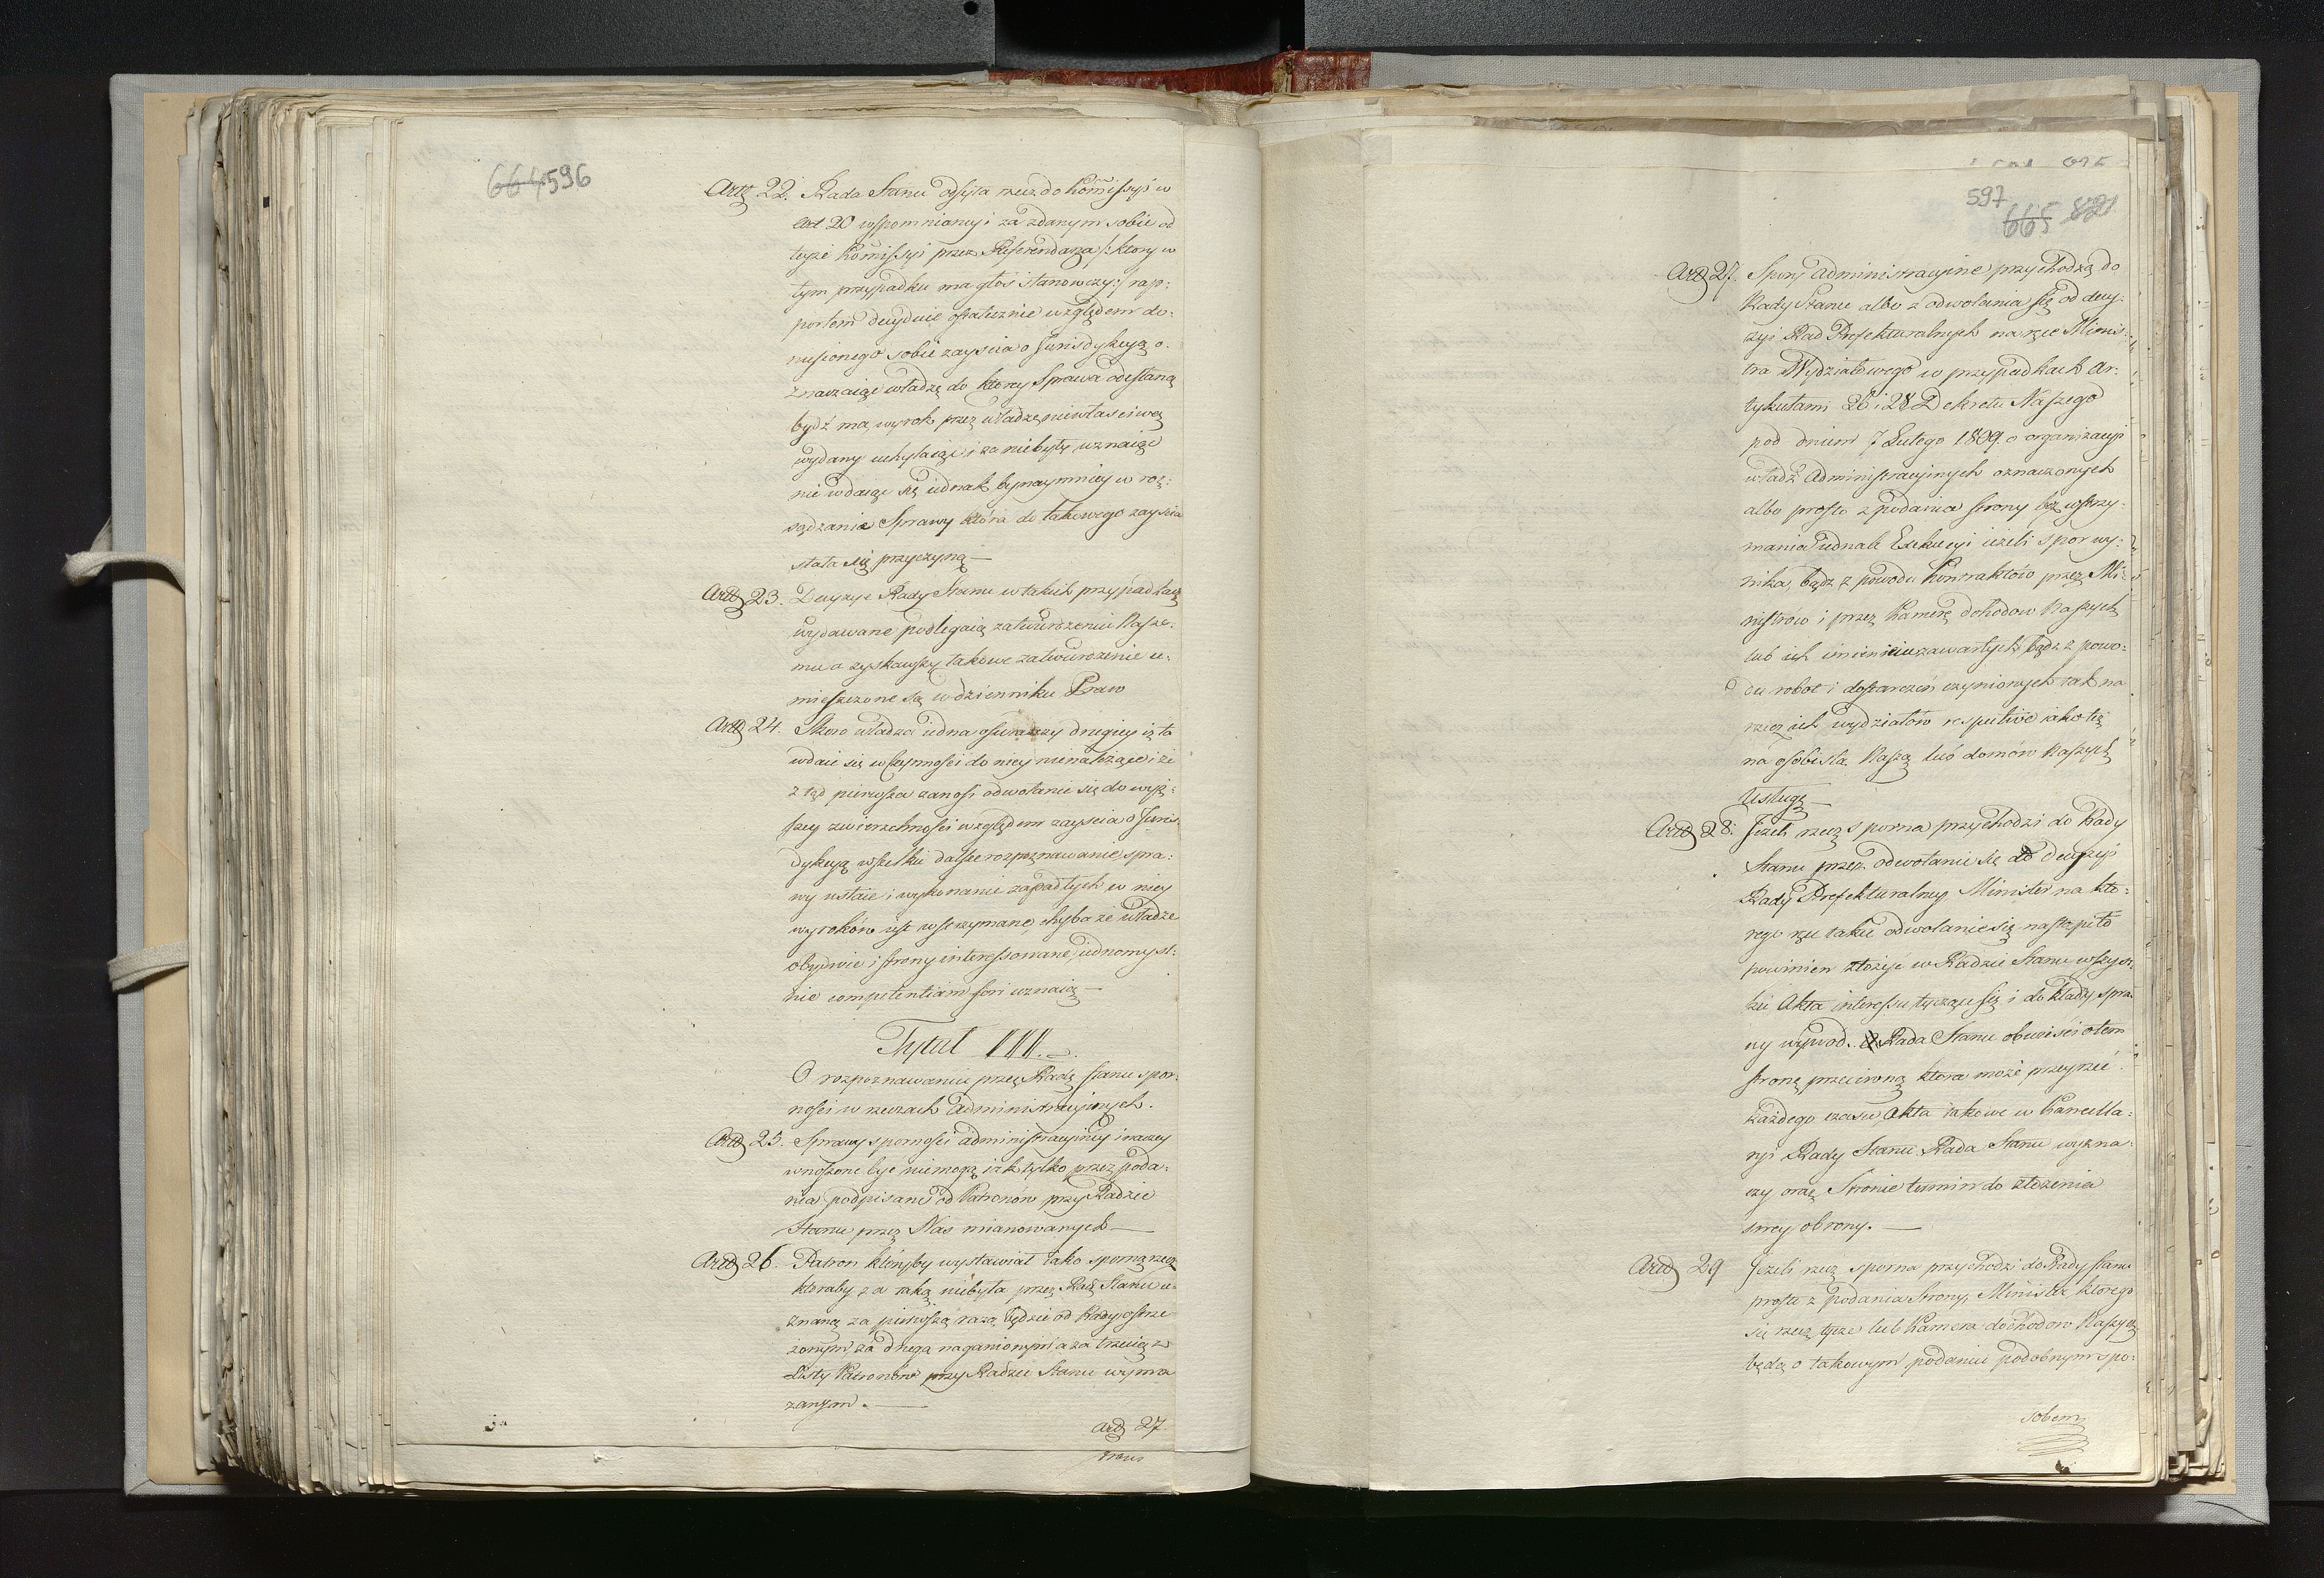 664 596
Artᵒ 22. Rada Stanu odsyła rzecz do Kom̄issyi w
Art 20 wspomnianey i za zdanym sobie od
teyże Kom̄issyi przez Referendarza /: ktory w
tym przypadku ma głos stanowczy :/ rap:
portem decyduie ostatecznie względem do:
niesionego sobie zayscia o Jurisdykcyą o:
znaczaiąc władzę do ktorey Sprawa odesłaną
bydź ma, wyrok przez władzę niewłasciwą
wydany uchylaiąc i za niebyły uznaiąc
nie wdaiąc się iednak bynaymniey w roz:
sądzanie Sprawy która do takowego zayscia
stała się przyczyną —
Artᵒ 23. Decyzye Rady Stanu w takich przypadkach
wydawane podlegaią zatwierdzeniu Nasze:
mu a zyskawszy takowe zatwierdzenie u:
mieszczone są w dzienniku Praw
Artᵒ 24. Skoro władza iedna oswiadczy drugiey iż ta
wdaie się w czynności do niey nienależące i że
z tąd pierwsza zanosi odwołanie się do wyż:
szey zwierzchności względem zayscia o Juris:
dykcyą wszelkie dalsze rozpoznawanie spra:
wy ustaie i wykonanie zapadłych w niey
wyroków iest wstrzymane, chyba że władze
obydwie i strony interessowane, iednomysl:
nie competentiam fori uznaią —
Tytuł III.
O rozpoznawaniu przez Radę Stanu spor:
ności w rzeczach Administracyinych.
Artᵒ 25. Sprawy sporności administracyiney inaczey
wnoszone bydź niemogą iak tylko przez poda:
nia podpisane od Patronów przy Radzie
Stanu przez Nas mianowanych —
Artᵒ 26. Patron któryby wystawiał iako sporną rzecz
ktoraby za taką niebyła przez Radę Stanu u:
znaną za pierwszą razą będzie od Rady ostrze
żonym za drugą naganionym a za trzecią z
Listy Patronów przy Radzie Stanu wyma
zanym. —
Artᵒ 27
597
665 821
Artᵒ 27. Spory administracyine przychodzą do
Rady Stanu albo z odwołania się od decy:
zyi Rad Prefekturalnych na ręce Minis:
tra Wydziałowego w przypadkach Ar:
tykułami 26 i 28 Dekretu Naszego
pod dniem 7 Lutego 1809 o organizacyi
władz Administracyinych oznaczonych
albo prosto z podania strony bez wstrzy:
mania iednak Exekucyi ieżeli spor wy:
nika, bądz z powodu Kontraktów przez Mi:
nistrów i przez Kamerę dohodow Naszych
lub ich imieniem zawartych bądz z powo:
du robot i dostarczeń czynionych tak na
rzecz ich wydziałów respective iako też
na osobistą Naszą lub domów Naszych
Usługę —
Artᵒ 28. Jeżeli rzecz sporna przychodzi do Rady
Stanu przez odwołanie się od decyzyi
Rady Prefekturalney, Minister na kto:
rego ręce takie odwołanie się nastąpiło
powinien złożyć w Radzie Stanu wszyst:
kie Akta interessu tyczące się i dokładny spra:
wy wywod. Rada Stanu obwiesci o tem
stronę przeciwną ktora może przeyrzeć
każdego czasu Akta takowe w Kancella:
ryi Rady Stanu. Rada Stanu wyzna:
czy oraz Stronie termin do złożenia
swey obrony. —
Artᵒ 29 Jeżeli rzecz sporna przychodzi do Rady Stanu
prosto z podania Strony, Minister ktorego
się rzecz tycze lub Kamera dochodow Naszych
będą o takowym podaniu podobnym spo:
sobem